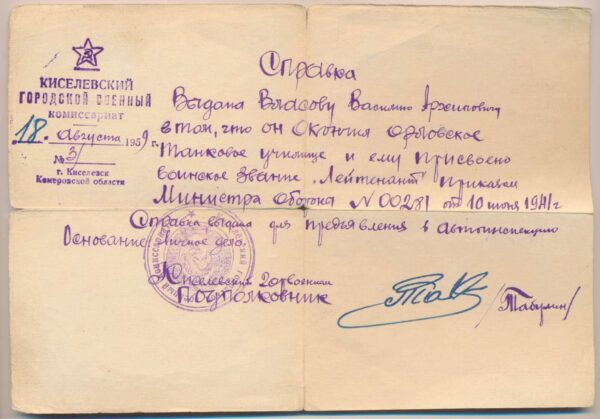 КИСЕЛЕВСКИЙ
ГОРОДСКОЙ ВОЕННЫЙ
комиссариат
18. августа 1959 г.
№ 3/
г. Киселевск
Кемеровской области
Справка
Выдана Власову Василию Архиповичу
в том, что он Окончил Орловское
Танковое училище и ему присвоено
воинское звание "Лейтенант" приказом
Министра Обороны N 00281 от 10 июня 1941 г
Справка выдана для предъявления в автоинспекцию
Основание: личное дело.
Киселевский горвоенком
Подполковник
/Табулин/